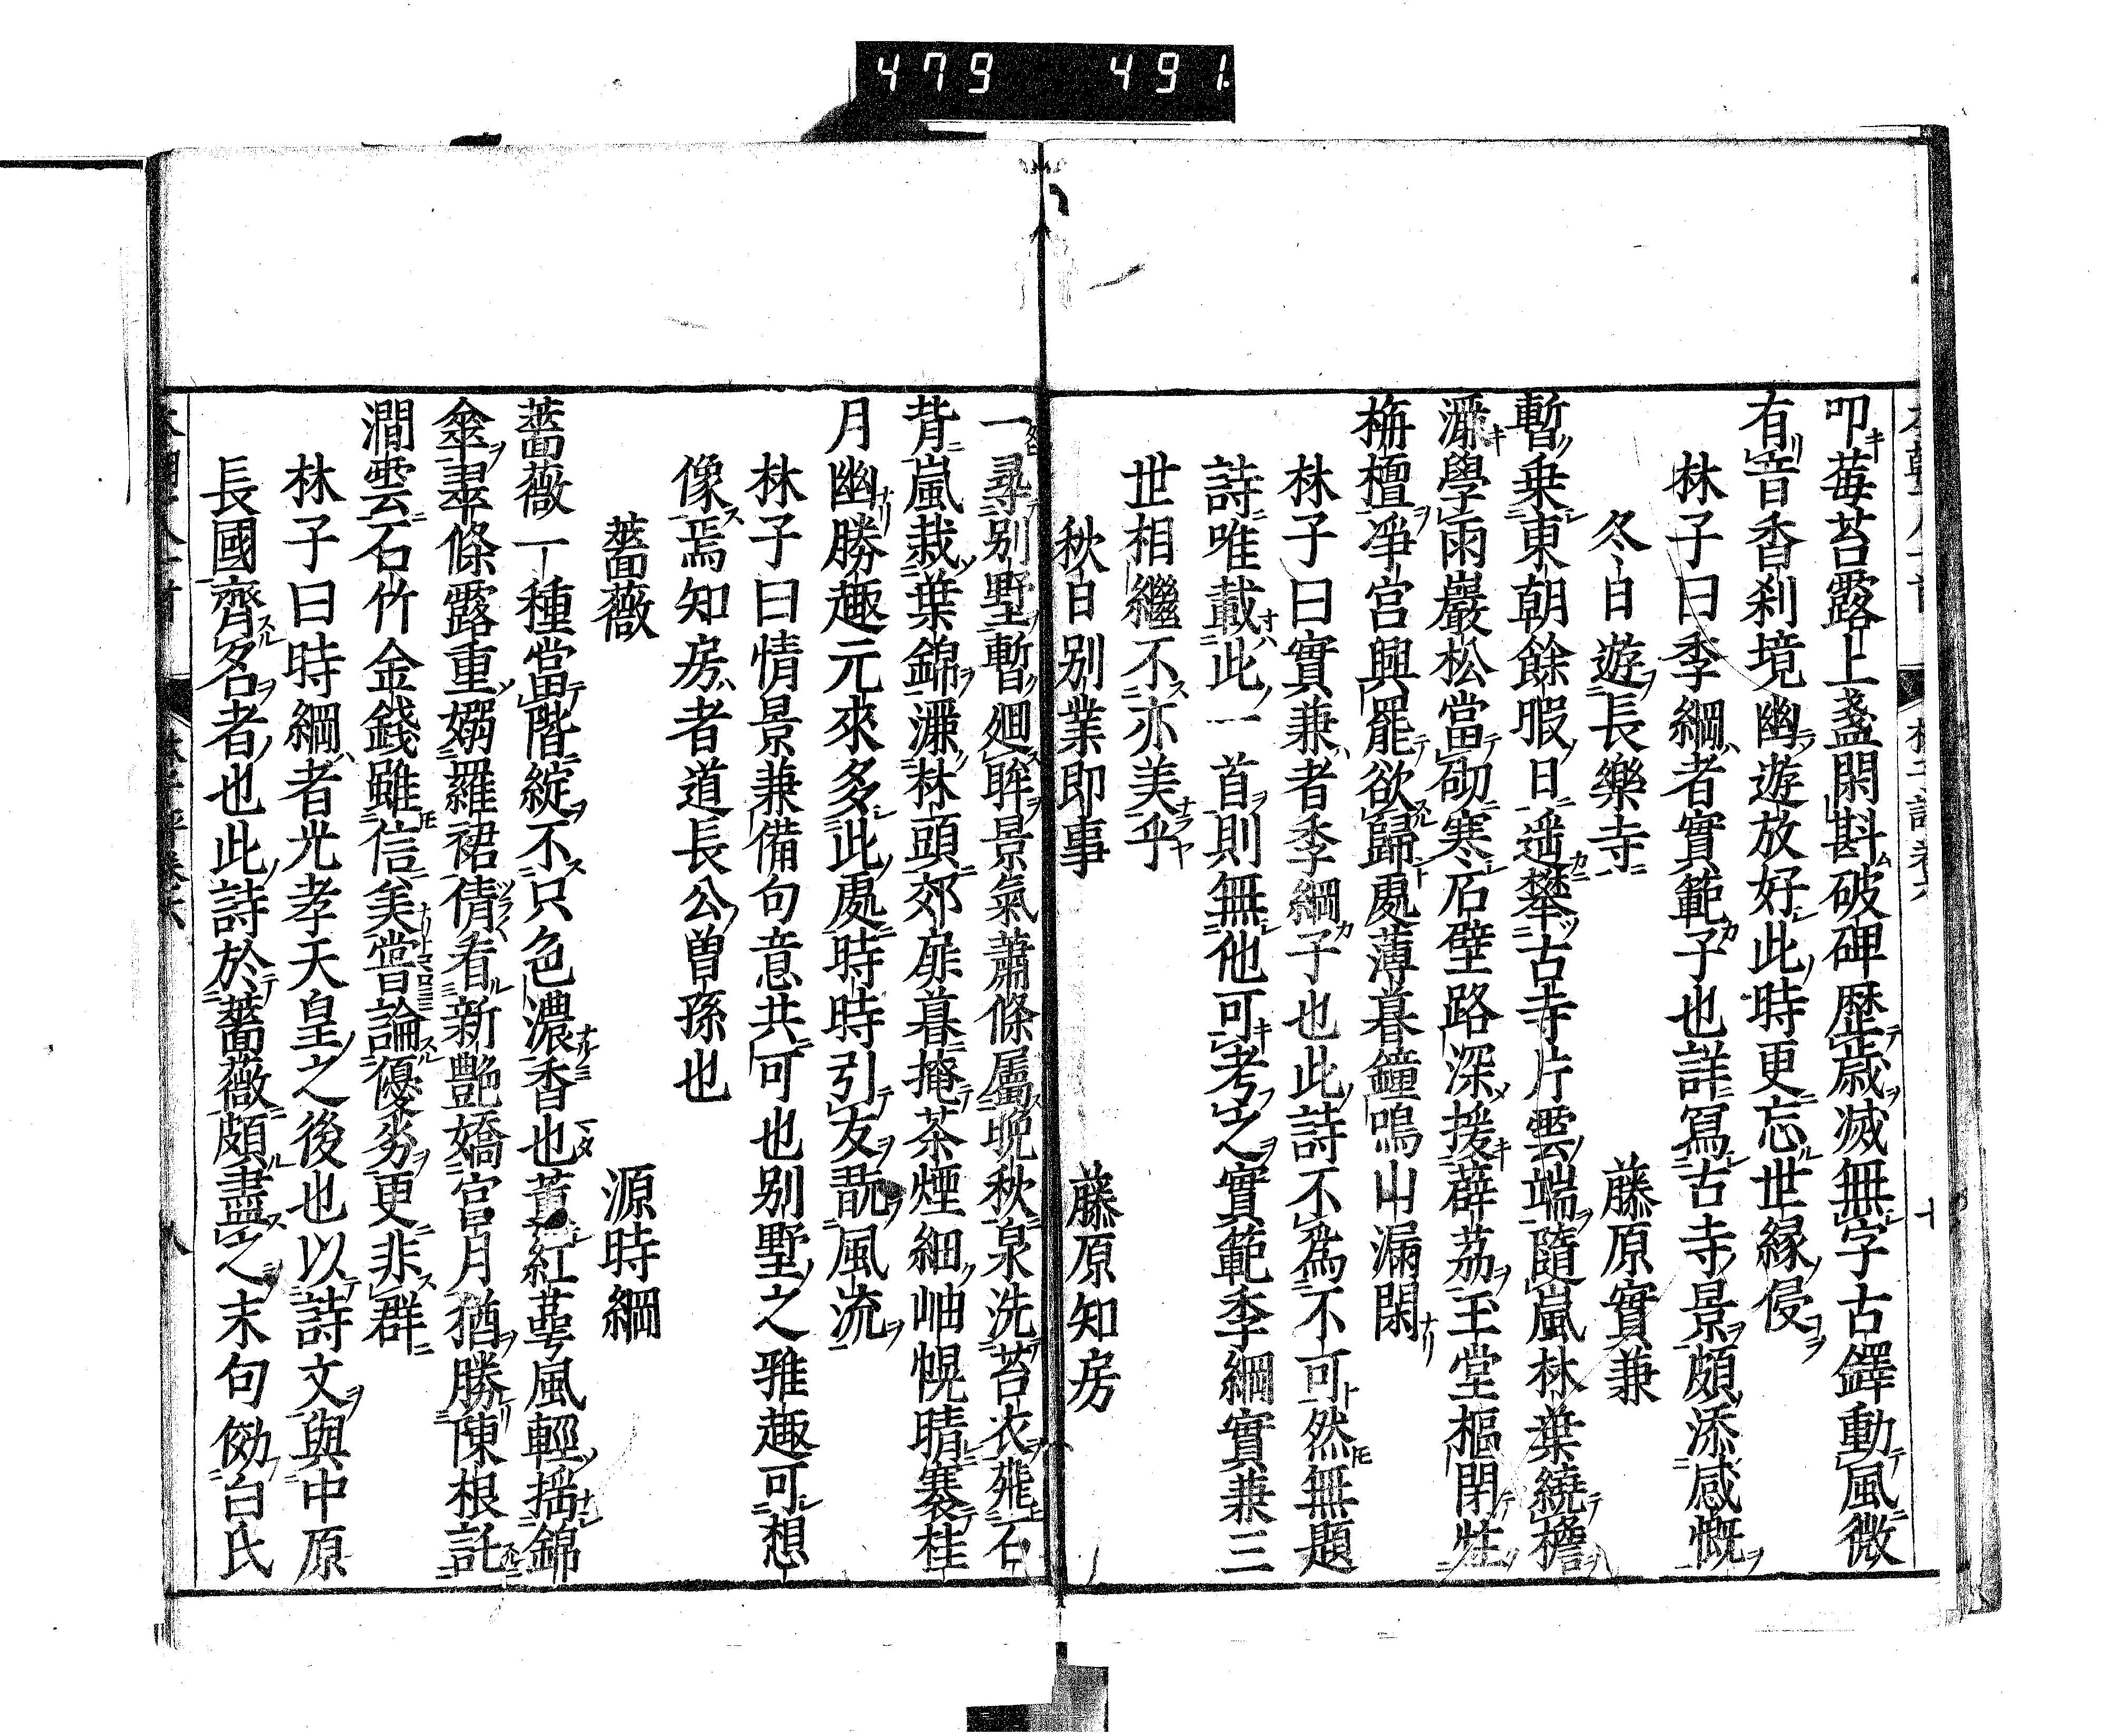 479 491
叩莓苔露上盞閑斟破碑歴歳滅無字古鐸動風微
有音香刹境幽遊放好此時更忘世縁侵
林子曰季綱者實範子也詳寫古寺景頗添感慨
冬日遊長樂寺 藤原實兼
暫乗東朝餘暇日遥攀古寺片雲端隨嵐林葉繞檐
灑學雨巖松當砌寒石壁路深援薜茘玉堂樞閉
栴檀爭宮興罷欲歸處薄暮鐘鳴山漏閑
林子曰實兼者季綱子也此詩不為不可然無題
詩唯載此一首則無他可考之實範季綱實兼三
世相繼不亦美乎
秋日別業即事 藤原知房
一尋別墅暫廻眸景氣蕭條屬晩秋泉洗苔衣飛石
背嵐裁葉錦灑林頭郊扉暮掩茶煙細岫幌晴褰桂
月幽勝趣元來多此處時時引友翫風流
林子曰情景兼備句意共可也別墅之雅趣可想
像焉知房者道長公曽孫也
薔薇 源時綱
薔薇一種當階綻不只色濃香也薫紅萼風輕揺錦
傘翠條露重嫋羅裙倩看新艶嬌宮月猶勝陳根託
澗雲石竹金錢雖信美嘗論優劣更非群
林子曰時綱者光孝天皇之後也以詩文與中原
長國齊名者也此詩於薔薇頗盡之末句傚白氏